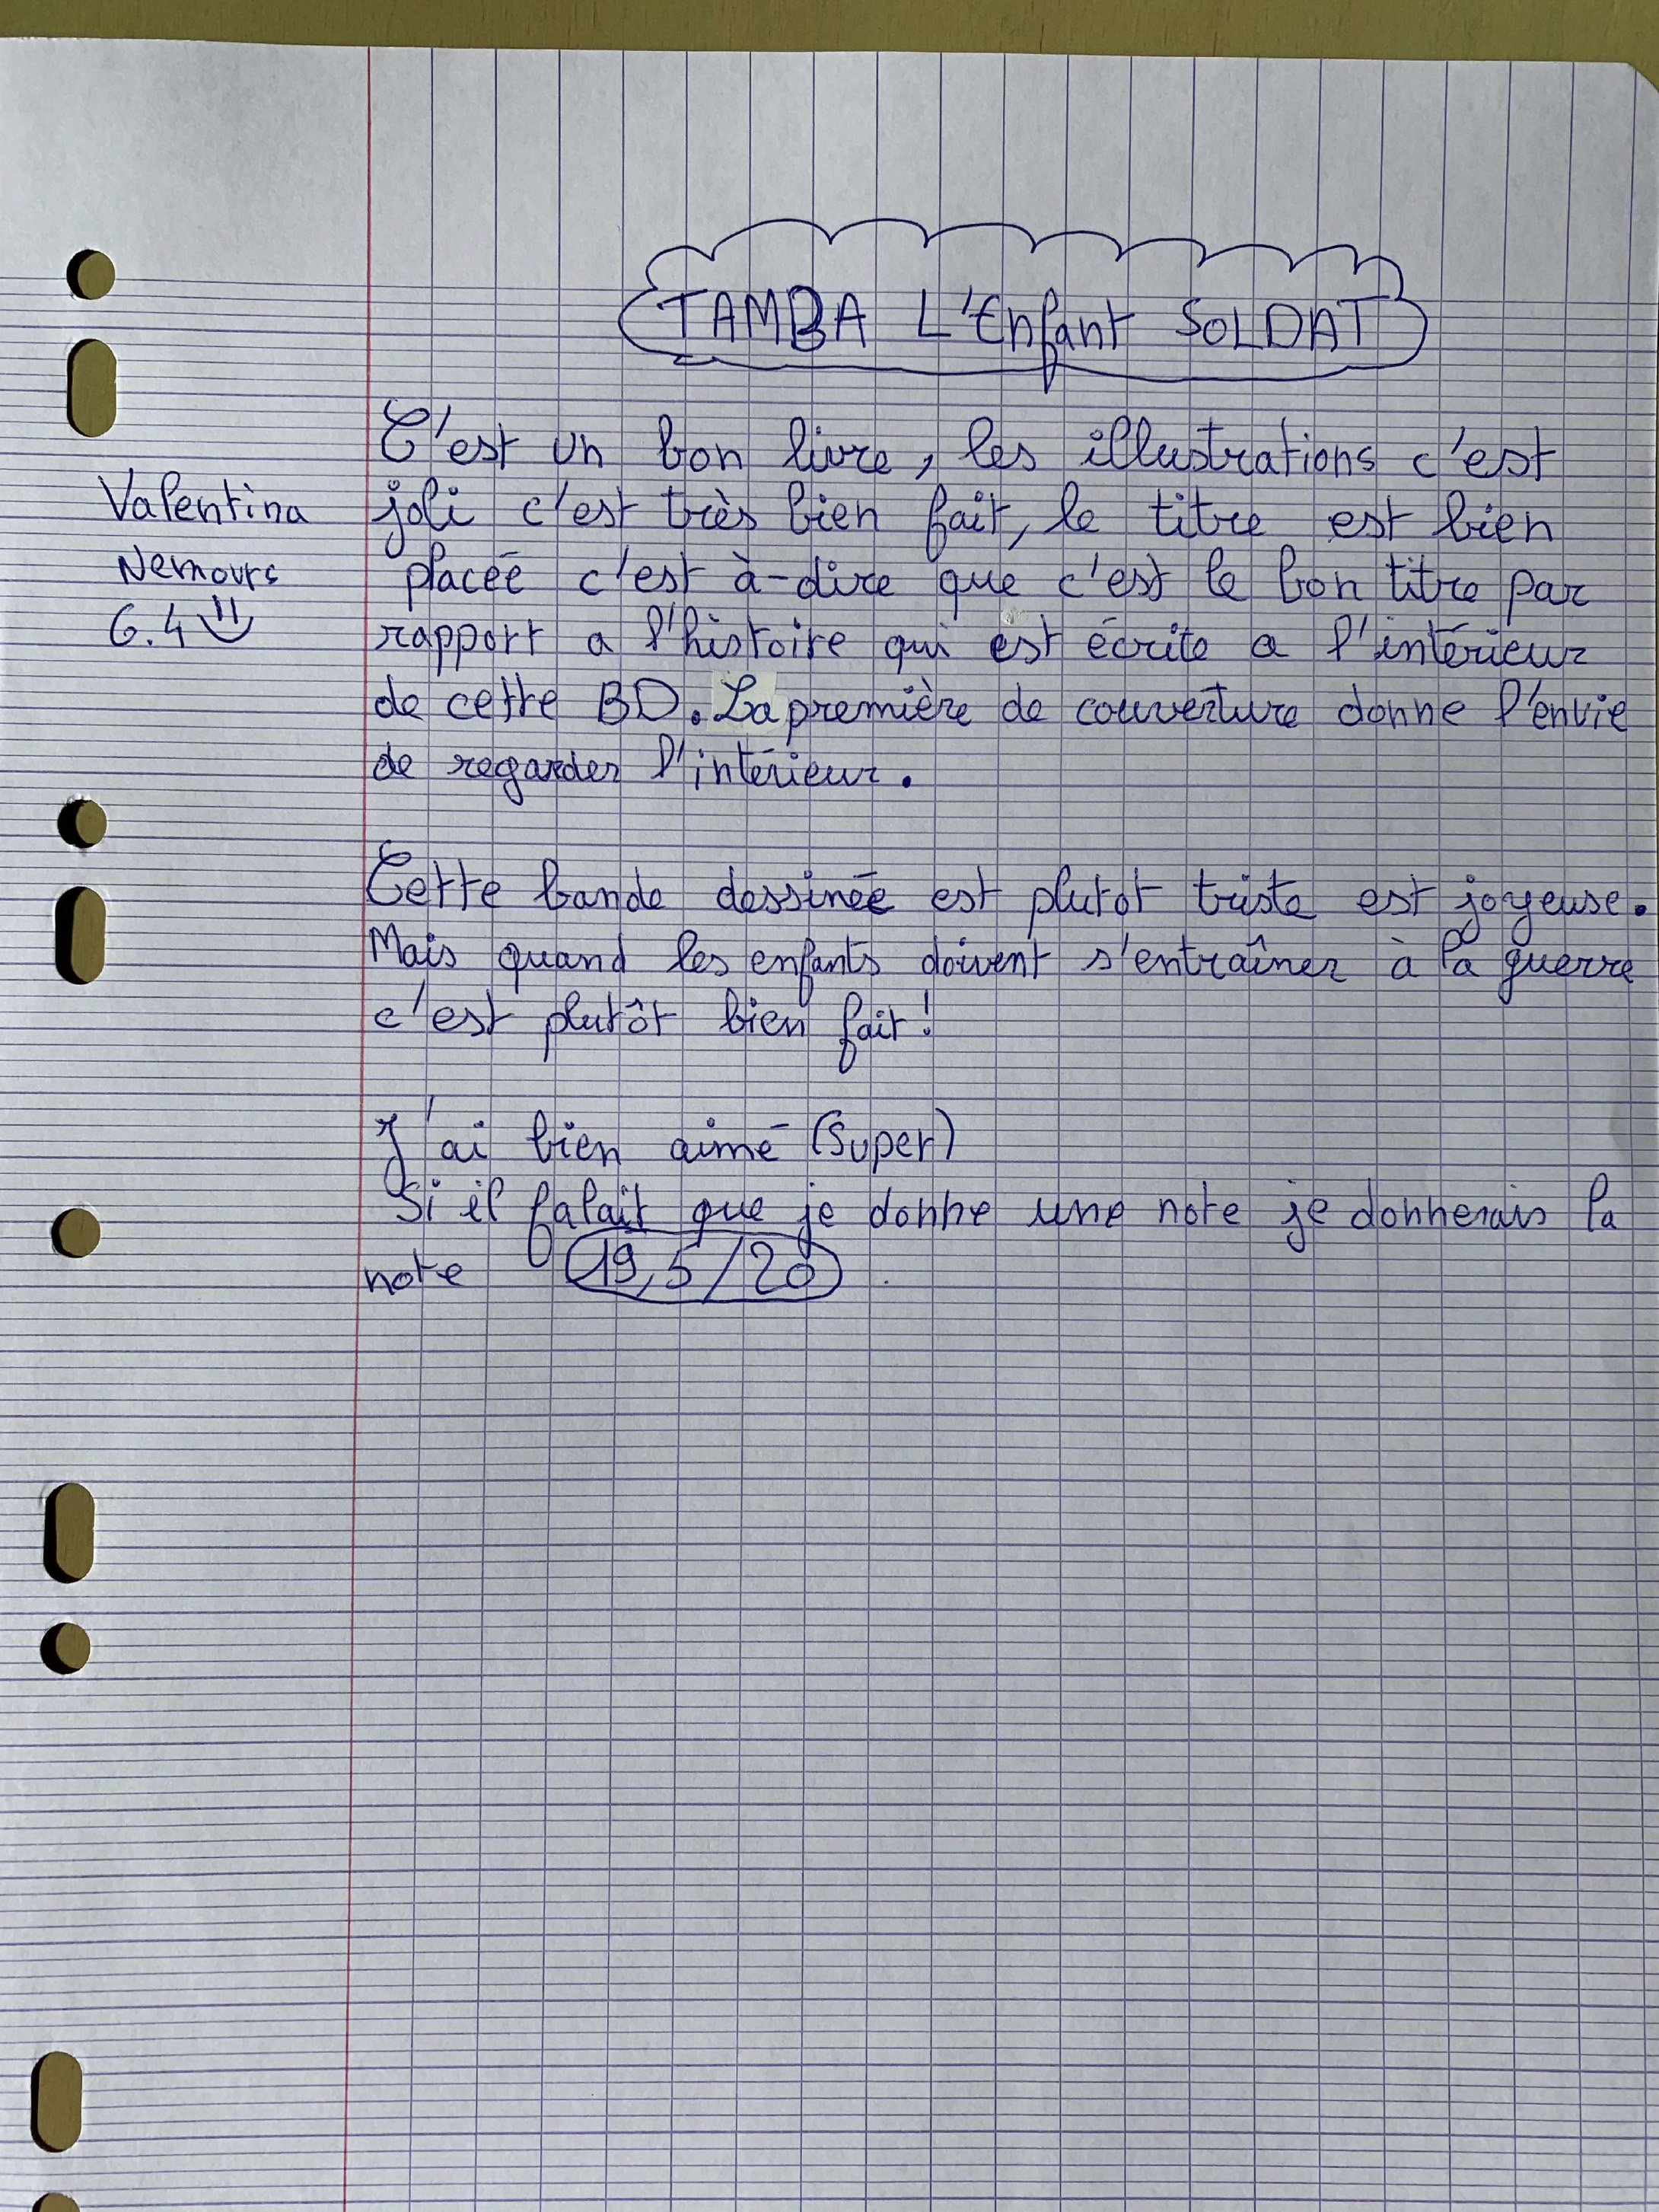 TAMBA L'Enfant SOLDAT
C'est un bon livre, les illustrations c'est
joli c'est très bien fait, le titre est bien
placée c'est à-dire que c'est le bon titre par
rapport a l'histoire qui est écrite a l'intérieur
de cette BD. La première de couverture donne l'envie
de regarder l'intérieur.
Valentina
Nemours
6.4
Cette bande dessinée est plutot triste est joyeuse.
Mais quand les enfants doivent s'entraîner à la guerre
c'est plutôt bien fait!
J'ai bien aimé (Super)
Si il falait que je donne une note je donnerais la
note 19,5/20.